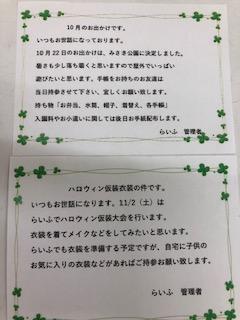 10月のお出かけです。
いつもお世話になっております。
10月22日のお出かけは、みさき公園に決定しました。
暑さも少し落ち着くと思いますので屋外でいっぱい
遊びたいと思います。手帳をお持ちのお友達は
当日持参させて下さい。宜しくお願い致します。
持ち物「お弁当、水筒、帽子、着替え、各手帳」
入園料やお小遣いに関しては後日お手紙配布します。
らいふ 管理者
ハロウィン仮装衣装の件です。
いつもお世話になります。11/2（土）は
らいふでハロウィン仮装大会を行います。
衣装を着てメイクなどをしてみたいと思います。
らいふでも衣装を準備する予定ですが、自宅に子供の
お気に入りの衣装などがあればご持参お願い致します。
らいふ 管理者